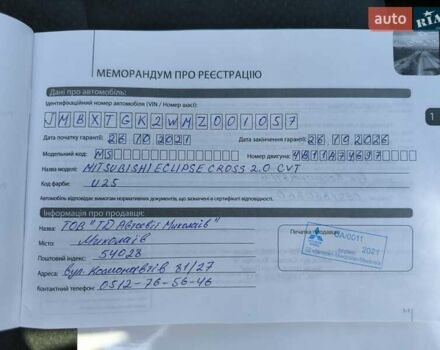 auto RIA
МЕМОРАНДУМ ПРО РЕЄСТРАЦІЮ
Дані про автомобіль:
Ідентифікаційний номер автомобіля (VIN / Номер шасі):
JMBXTGK2WMZ001057
Дата початку гарантії: 26 10 2021 Дата закінчення гарантії: 26 10 2026
Модельний код: MS Номер двигуна: 4B11A74637
Назва моделі: MITSUBISHI ECLIPSE CROSS 2.0 CVT
Код фарби: U25
Автомобіль відповідає вимогам нормативних документів, що зазначені в сертифікаті відповідності.
Інформація про продавця:
Назва: ТОВ "ТД Автосвіт Миколаїв" Печатка продавця:
Місто: Миколаїв
UA/0011
Поштовий індекс: 54028
2021
Адреса: вул. Космонавтів 81/27
Контактний телефон: 0512-76-56-46
1
1-1